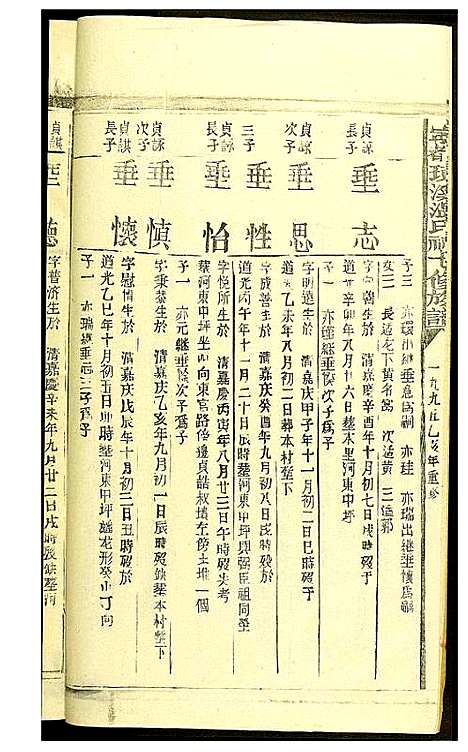 寧都璜溪溫氏補下修族譜
一九九五乙亥年重修
子三 亦環出繼垂意爲嗣 亦珪 亦瑞出繼垂懷爲嗣
女三 長適老下黃名窩 次適黃 三適郭
貞詠長子 垂志
字嗣生於 清嘉慶辛酉年十月初七日戌時歿於
道光辛卯年八月廿六日葬本里河東中坪
子一 亦瑾繼垂懷次子爲子
次子 垂思
字明遠生於 清嘉慶甲子年十一月初二日巳時歿於
道光乙未年八月初二日葬本村垄下
三子 垂性
字成善生於 清嘉慶癸酉年九月初八日戌時歿於
道光丙午年十一月二十日時葬河東甲坪與強臣祖同塋
貞詠長子 垂怡
字悅所生於 清嘉慶丙寅年八月廿三日午時歿失考
葬河東中坪坐四向東官路傍邊貞誥叔墳至傍土堆一個
子一 亦元繼垂懷次子爲子
貞謀次子 垂慎
字秉泰生於 清嘉慶乙亥年九月初一日辰時歿缺葬本村垄下
貞諆長子 垂懷
字慰情生於 清嘉慶戊辰年十月初二日丑時歿於
道光乙巳年十月初五日卯時葬河東甲坪雄龙形癸山丁向
子一 亦瑞繼垂志三子爲子
貞諆長子
字普濟生於 清嘉慶辛未年九月廿二日戌時歿缺葬河